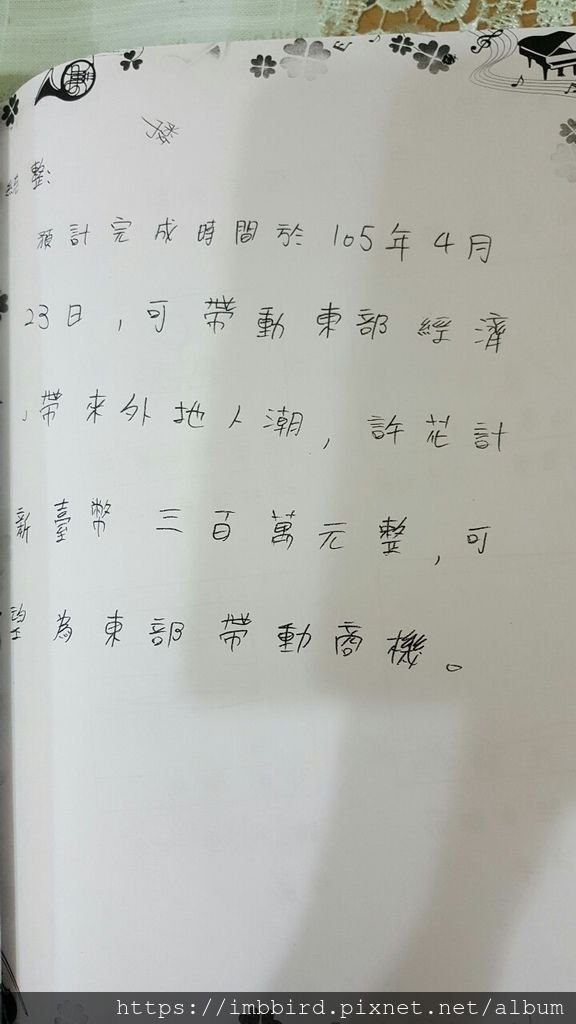 統整:
預計完成時間於105年4月
23日,可帶動東部經濟
,帶來外地人潮,許花計
新臺幣三百萬元整,可
望為東部帶動商機。
https://imbbird.pixnet.net/album